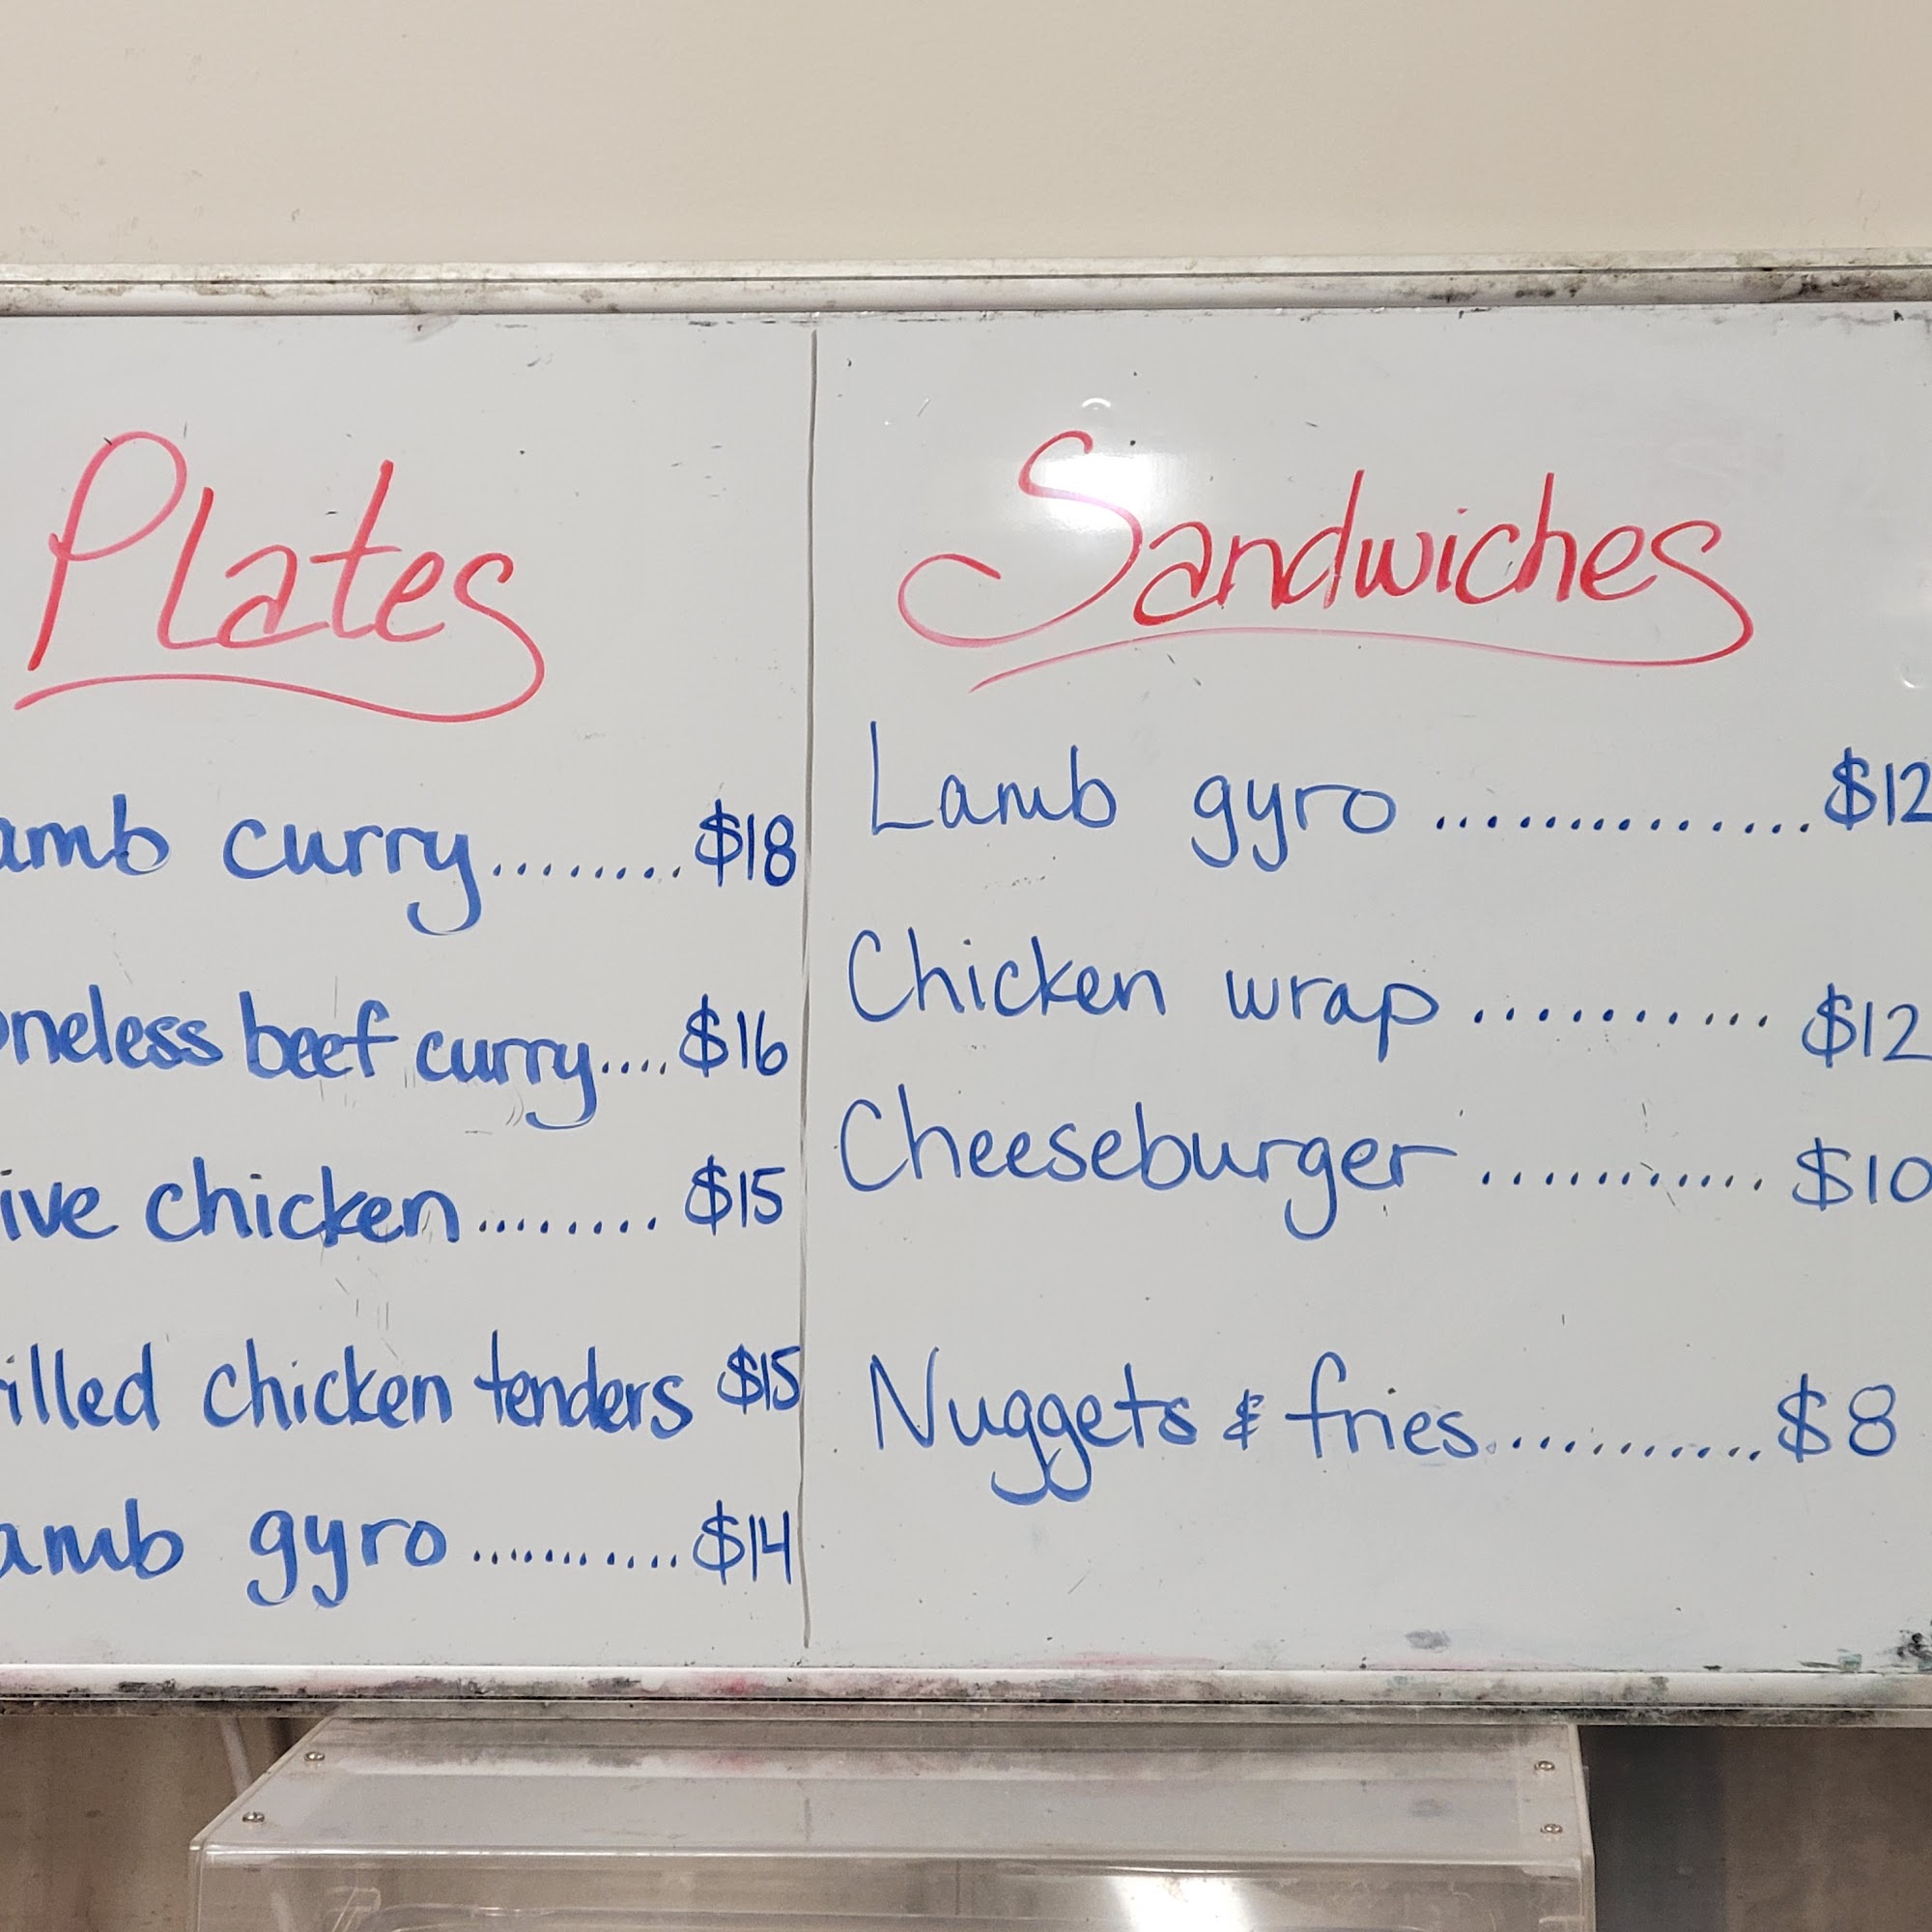 Plates
amb curry........$18
oneless beef curry....$16
ive chicken........$15
illed chicken tenders $15
amb gyro...........$14
Sandwiches
Lamb gyro ...............$12
Chicken wrap ...........$12
Cheeseburger ............$10
Nuggets & fries...........$8